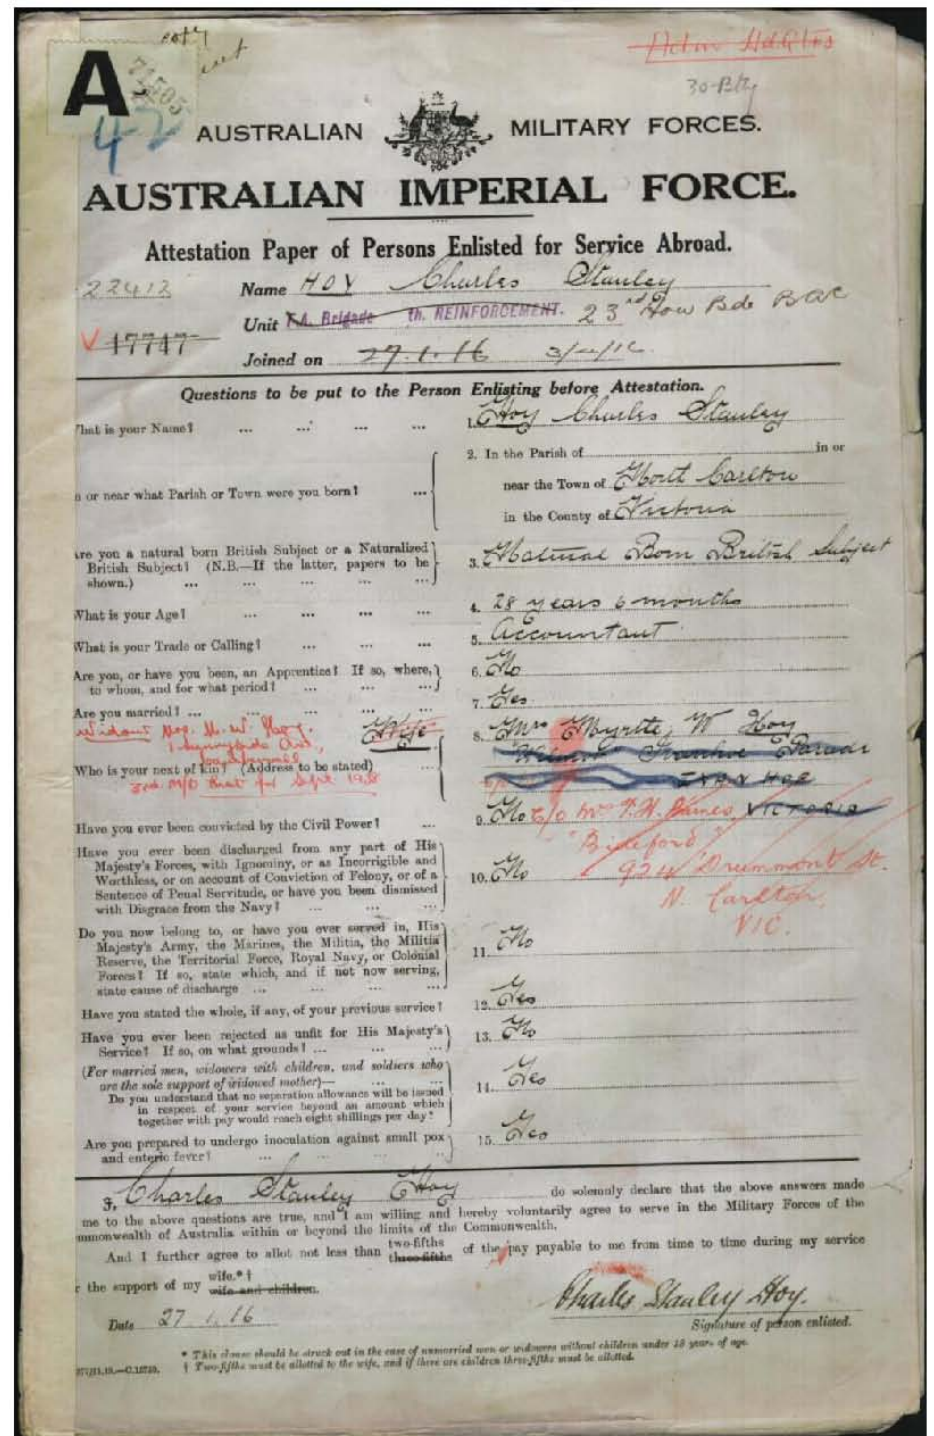 copy
A
71505
42
Admn HdQtrs
30-Bty
AUSTRALIAN MILITARY FORCES.
AUSTRALIAN IMPERIAL FORCE.
Attestation Paper of Persons Enlisted for Service Abroad.
22412 Name HOY Charles Stanley
Unit F.A. Brigade th. REINFORCEMENT. 23rd How Bde BAC
V 17747
Joined on 27.1.16
Questions to be put to the Person Enlisting before Attestation.
hat is your Name? ... ... ... ... 1. Hoy Charles Stanley
2. In the Parish of in or
n or near what Parish or Town were you born? ... near the Town of North Carlton
in the County of Victoria
re you a natural born British Subject or a Naturalized
British Subject? (N.B.—If the latter, papers to be 3. Natural Born British Subject
shown.) ... ... ... ... ...
What is your Age? ... ... ... 4. 28 years 6 months
What is your Trade or Calling? ... ... ... 5. Accountant
Are you, or have you been, an Apprentice? If so, where, 6. No
to whom, and for what period? ... ... ...
Are you married? ... ... ... ... ... 7. Yes
Widow M. W. Hoy. Wife 8. Mrs Myrtle W Hoy
1 Sunnyside Ave, Ivanhoe Parade
Camberwell
Who is your next of kin? (Address to be stated) ... IVANHOE
3rd M/D Sept 1918
Have you ever been convicted by the Civil Power? ... 9. No c/o Mrs James, VICTORIA
"Bideford"
Have you ever been discharged from any part of His
Majesty's Forces, with Ignominy, or as Incorrigible and
Worthless, or on account of Conviction of Felony, or of a 10. No 924 Drummond St.
Sentence of Penal Servitude, or have you been dismissed
with Disgrace from the Navy? ... ... ... N. Carlton,
VIC.
Do you now belong to, or have you ever served in, His
Majesty's Army, the Marines, the Militia, the Militia
Reserve, the Territorial Force, Royal Navy, or Colonial 11. No
Forces? If so, state which, and if not now serving,
state cause of discharge ... ... ... ...
Have you stated the whole, if any, of your previous service? 12. Yes
Have you ever been rejected as unfit for His Majesty's 13. No
Service? If so, on what grounds? ... ... ...
(For married men, widowers with children, and soldiers who
are the sole support of widowed mother)— ... ...
Do you understand that no separation allowance will be issued 14. Yes
in respect of your service beyond an amount which
together with pay would reach eight shillings per day?
Are you prepared to undergo inoculation against small pox 15. Yes
and enteric fever? ... ... ... ...
I, Charles Stanley Hoy do solemnly declare that the above answers made
me to the above questions are true, and I am willing and hereby voluntarily agree to serve in the Military Forces of the
mmonwealth of Australia within or beyond the limits of the Commonwealth.
And I further agree to allot not less than two-fifths three-fifths of the pay payable to me from time to time during my service
r the support of my wife.*† wife and children.
Date 27.1.16 Charles Stanley Hoy.
Signature of person enlisted.
* This clause should be struck out in the case of unmarried men or widowers without children under 18 years of age.
† Two-fifths must be allotted to the wife, and if there are children three-fifths must be allotted.